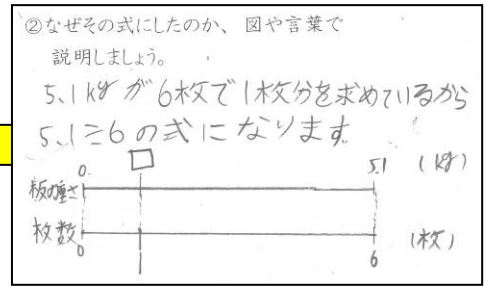 ②なぜその式にしたのか、図や言葉で
説明しましょう。
5.1kgが6枚で1枚分を求めているから
5.1÷6の式になります。
0 □ 5.1 (kg)
板の重さ
枚数
0 1 6 (枚)